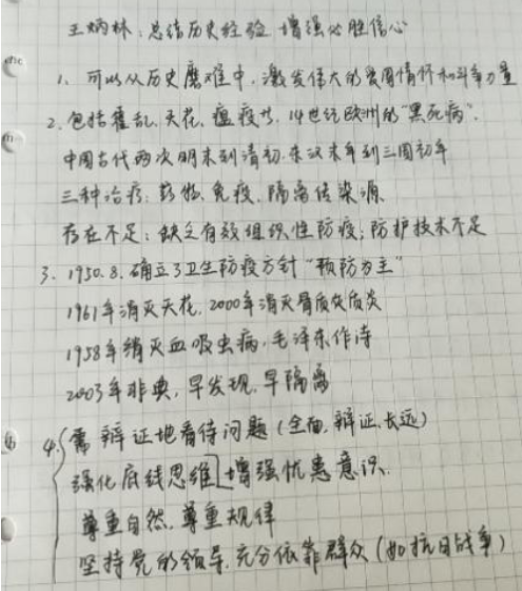 王炳林：总结历史经验 增强必胜信心
1、可以从历史磨难中，激发伟大的爱国情怀和斗争力量
2、包括霍乱、天花、瘟疫等，14世纪欧洲的"黑死病"．
中国古代两次明末到清初．东汉末年到三国初年
三种治疗：药物、免疫、隔离传染源
存在不足：缺乏有效组织性防疫；防护技术不足
3、1950.8.确立了卫生防疫方针"预防为主"
1961年消灭天花，2000年消灭脊质灰质炎
1958年消灭血吸虫病，毛泽东作诗
2003年非典，早发现，早隔离
4、需辩证地看待问题（全面，辩证，长远）
强化底线思维 增强忧患意识．
尊重自然，尊重规律
坚持党的领导，充分依靠群众（如抗日战争）